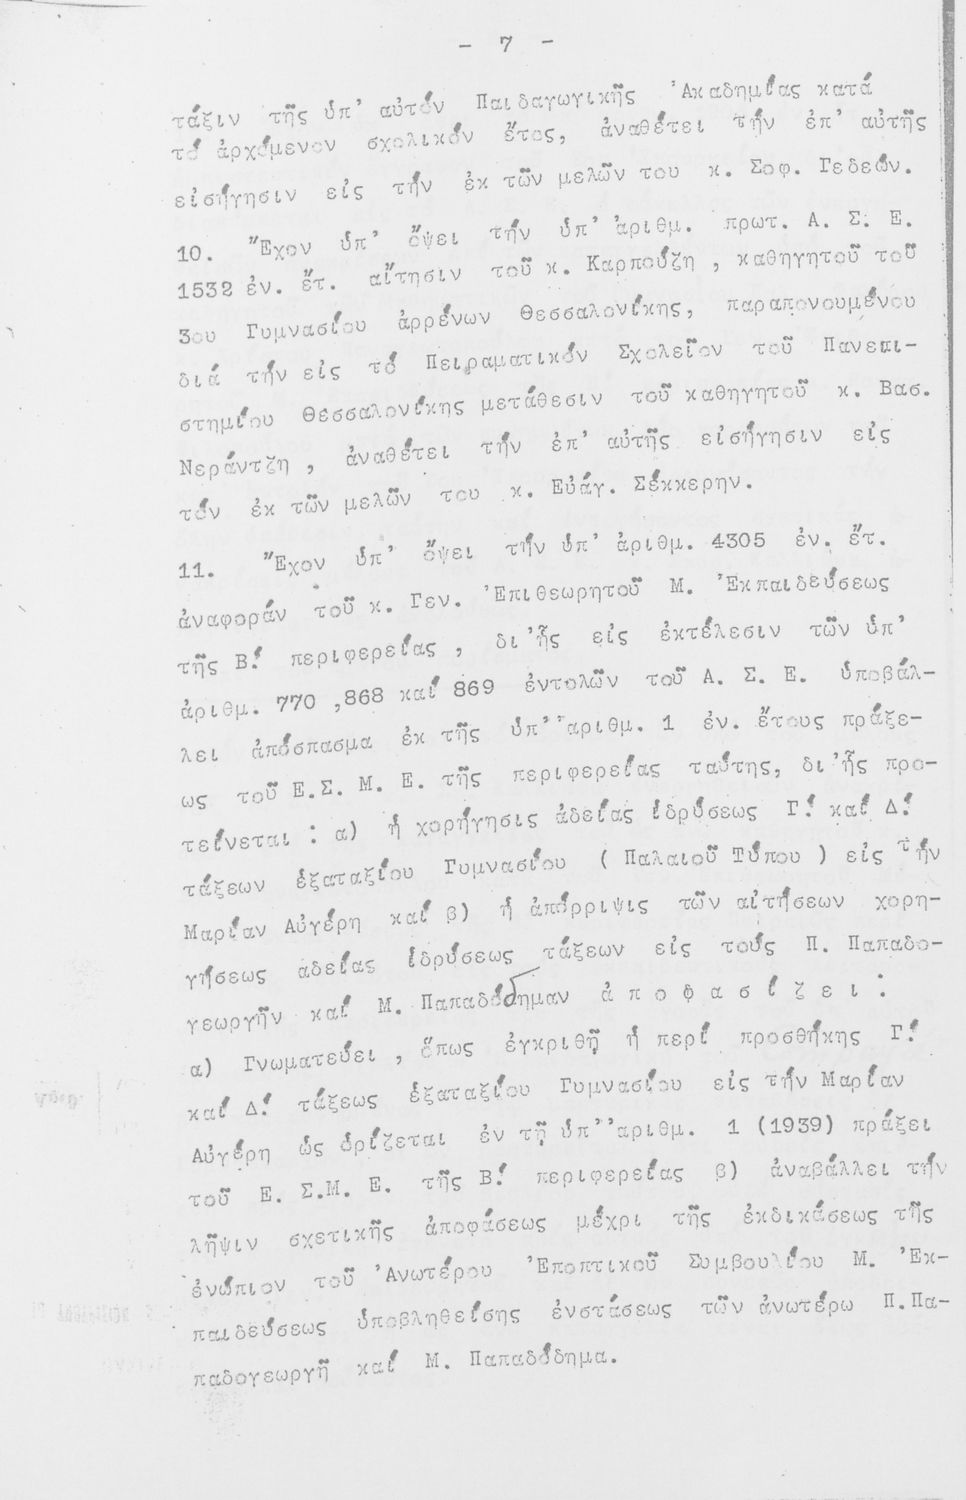 - 7 -
τάξιν τῆς ὑπ' αὐτόν Παιδαγωγικῆς 'Ακαδημίας κατά
τό ἀρχόμενον σχολικόν ἔτος, ἀναθέτει τήν ἐπ' αὐτῆς
εἰσήγησιν εἰς τήν ἐκ τῶν μελῶν του κ. Σοφ. Γεδεών.
10. "Εχον ὑπ' ὄψει τήν ὑπ' ἀριθμ. πρωτ. Α. Σ. Ε.
1532 ἐν. ἔτ. αἴτησιν τοῦ κ. Καρπούζη , καθηγητοῦ τοῦ
3ου Γυμνασίου ἀρρένων Θεσσαλονίκης, παραπονουμένου
διά τήν εἰς τό Πειραματικόν Σχολεῖον τοῦ Πανεπι-
στημίου Θεσσαλονίκης μετάθεσιν τοῦ καθηγητοῦ κ. Βασ.
Νεράντζη , ἀναθέτει τήν ἐπ' αὐτῆς εἰσήγησιν εἰς
τόν ἐκ τῶν μελῶν του κ. Εὐάγ. Σέκκερην.
11. "Εχον ὑπ' ὄψει τήν ὑπ' ἀριθμ. 4305 ἐν. ἔτ.
ἀναφοράν τοῦ κ. Γεν. 'Επιθεωρητοῦ Μ. 'Εκπαιδεύσεως
τῆς Β! περιφερείας , δι'ἧς εἰς ἐκτέλεσιν τῶν ὑπ'
ἀριθμ. 770 ,868 καί 869 ἐντολῶν τοῦ Α. Σ. Ε. ὑποβάλ-
λει ἀπόσπασμα ἐκ τῆς ὑπ''αριθμ. 1 ἐν. ἔτους πράξε-
ως τοῦ Ε.Σ. Μ. Ε. τῆς περιφερείας ταύτης, δι'ἧς προ-
τείνεται : α) ἡ χορήγησις ἀδείας ἱδρύσεως Γ! καί Δ!
τάξεων ἑξαταξίου Γυμνασίου ( Παλαιοῦ Τύπου ) εἰς τήν
Μαρίαν Αὐγέρη καί β) ἡ ἀπόρριψις τῶν αἰτήσεων χορη-
γήσεως αδείας ἱδρύσεως τάξεων εἰς τούς Π. Παπαδο-
γεωργῆν καί Μ. Παπαδόδημαν ἀ π ο φ α σ ί ζ ε ι :
α) Γνωματεύει , ὅπως ἐγκριθῇ ἡ περί προσθήκης Γ!
καί Δ! τάξεως ἑξαταξίου Γυμνασίου εἰς τήν Μαρίαν
Αὐγέρη ὡς ὁρίζεται ἐν τῇ ὑπ''αριθμ. 1 (1939) πράξει
τοῦ Ε. Σ.Μ. Ε. τῆς Β! περιφερείας β) ἀναβάλλει τήν
λῆψιν σχετικῆς ἀποφάσεως μέχρι τῆς ἐκδικάσεως τῆς
ἐνώπιον τοῦ 'Ανωτέρου 'Εποπτικοῦ Συμβουλίου Μ. 'Εκ-
παιδεύσεως ὑποβληθείσης ἐνστάσεως τῶν ἀνωτέρω Π.Πα-
παδογεωργῆ καί Μ. Παπαδόδημα.